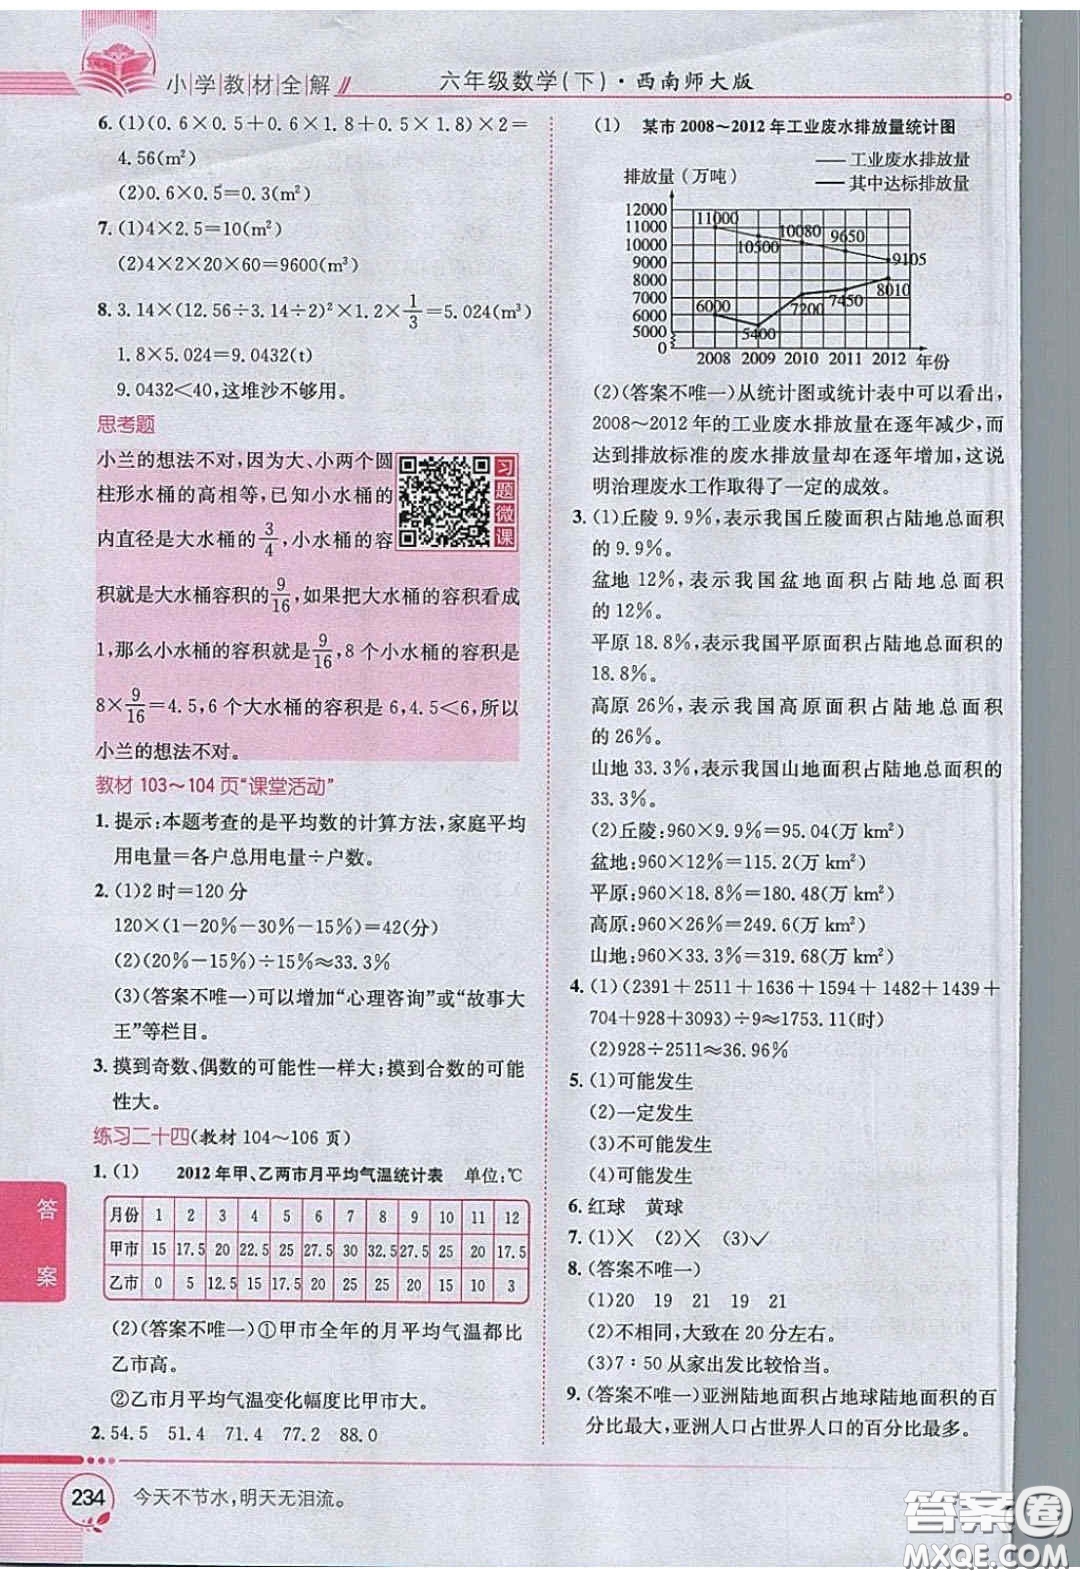 小学教材全解
六年级数学(下)·西南师大版
6. (1)(0.6×0.5+0.6×1.8+0.5×1.8)×2=
4.56(m²)
(2)0.6×0.5=0.3(m²)
7. (1)4×2.5=10(m²)
(2)4×2×20×60=9600(m³)
8. 3.14×(12.56÷3.14÷2)²×1.2×1/3=5.024(m³)
1.8×5.024=9.0432(t)
9.0432<40,这堆沙不够用。
思考题
小兰的想法不对,因为大、小两个圆
柱形水桶的高相等,已知小水桶的
内直径是大水桶的3/4,小水桶的容
积就是大水桶容积的9/16,如果把大水桶的容积看成
1,那么小水桶的容积就是9/16,8个小水桶的容积是
8×9/16=4.5,6个大水桶的容积是6,4.5<6,所以
小兰的想法不对。
习题微课
教材103~104页“课堂活动”
1. 提示:本题考查的是平均数的计算方法,家庭平均
用电量=各户总用电量÷户数。
2. (1)2时=120分
120×(1-20%-30%-15%)=42(分)
(2)(20%-15%)÷15%≈33.3%
(3)(答案不唯一)可以增加“心理咨询”或“故事大
王”等栏目。
3. 摸到奇数、偶数的可能性一样大;摸到合数的可能
性大。
练习二十四(教材104~106页)
1. (1) 2012年甲、乙两市月平均气温统计表 单位:℃
月份 1 2 3 4 5 6 7 8 9 10 11 12
甲市 15 17.5 20 22.5 25 27.5 30 32.5 27.5 25 20 17.5
乙市 0 5 12.5 15 17.5 20 25 25 20 15 10 3
(2)(答案不唯一)①甲市全年的月平均气温都比
乙市高。
②乙市月平均气温变化幅度比甲市大。
2. 54.5 51.4 71.4 77.2 88.0
(1) 某市2008~2012年工业废水排放量统计图
工业废水排放量
排放量(万吨)
其中达标排放量
12000
11000
10000
9000
8000
7000
6000
5000
0
11000
10500
10080
9650
9105
6000
5400
7200
7450
8010
2008 2009 2010 2011 2012 年份
(2)(答案不唯一)从统计图或统计表中可以看出,
2008~2012年的工业废水排放量在逐年减少,而
达到排放标准的废水排放量却在逐年增加,这说
明治理废水工作取得了一定的成效。
3. (1)丘陵9.9%,表示我国丘陵面积占陆地总面积
的9.9%。
盆地12%,表示我国盆地面积占陆地总面积
的12%。
平原18.8%,表示我国平原面积占陆地总面积的
18.8%。
高原26%,表示我国高原面积占陆地总面积
的26%。
山地33.3%,表示我国山地面积占陆地总面积的
33.3%。
(2)丘陵:960×9.9%=95.04(万km²)
盆地:960×12%=115.2(万km²)
平原:960×18.8%=180.48(万km²)
高原:960×26%=249.6(万km²)
山地:960×33.3%=319.68(万km²)
4. (1)(2391+2511+1636+1594+1482+1439+
704+928+3093)÷9≈1753.11(时)
(2)928÷2511≈36.96%
5. (1)可能发生
(2)一定发生
(3)不可能发生
(4)可能发生
6. 红球 黄球
7. (1)× (2)× (3)✓
8. (答案不唯一)
(1)20 19 21 19 21
(2)不相同,大致在20分左右。
(3)7:50从家出发比较恰当。
9. (答案不唯一)亚洲陆地面积占地球陆地面积的百
分比最大,亚洲人口占世界人口的百分比最多。
答案
234
今天不节水,明天无泪流。
答案圈
MXQE.COM